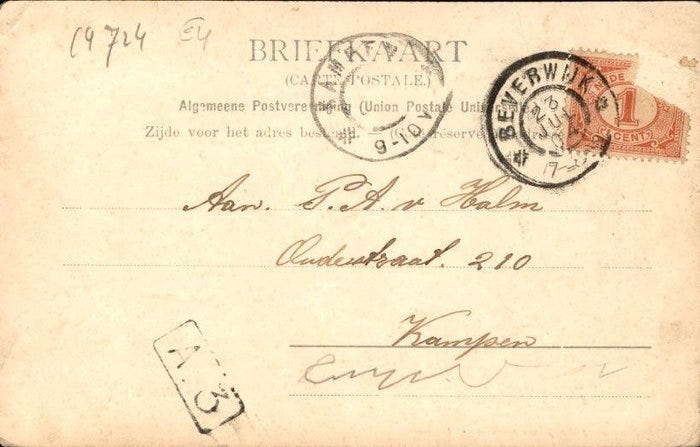 C4 724 E4
BRIEFKAART
(CARTE POSTALE.)
Algemeene Postvereeniging (Union Postale Universelle)
Zijde voor het adres bestemd. Côté réservé
KAMPEN
9-10V
BEVERWIJK
23
JUL
1
CENT
Aan. P. A. v Halm
Oudestraat. 210
Kampen
A 3